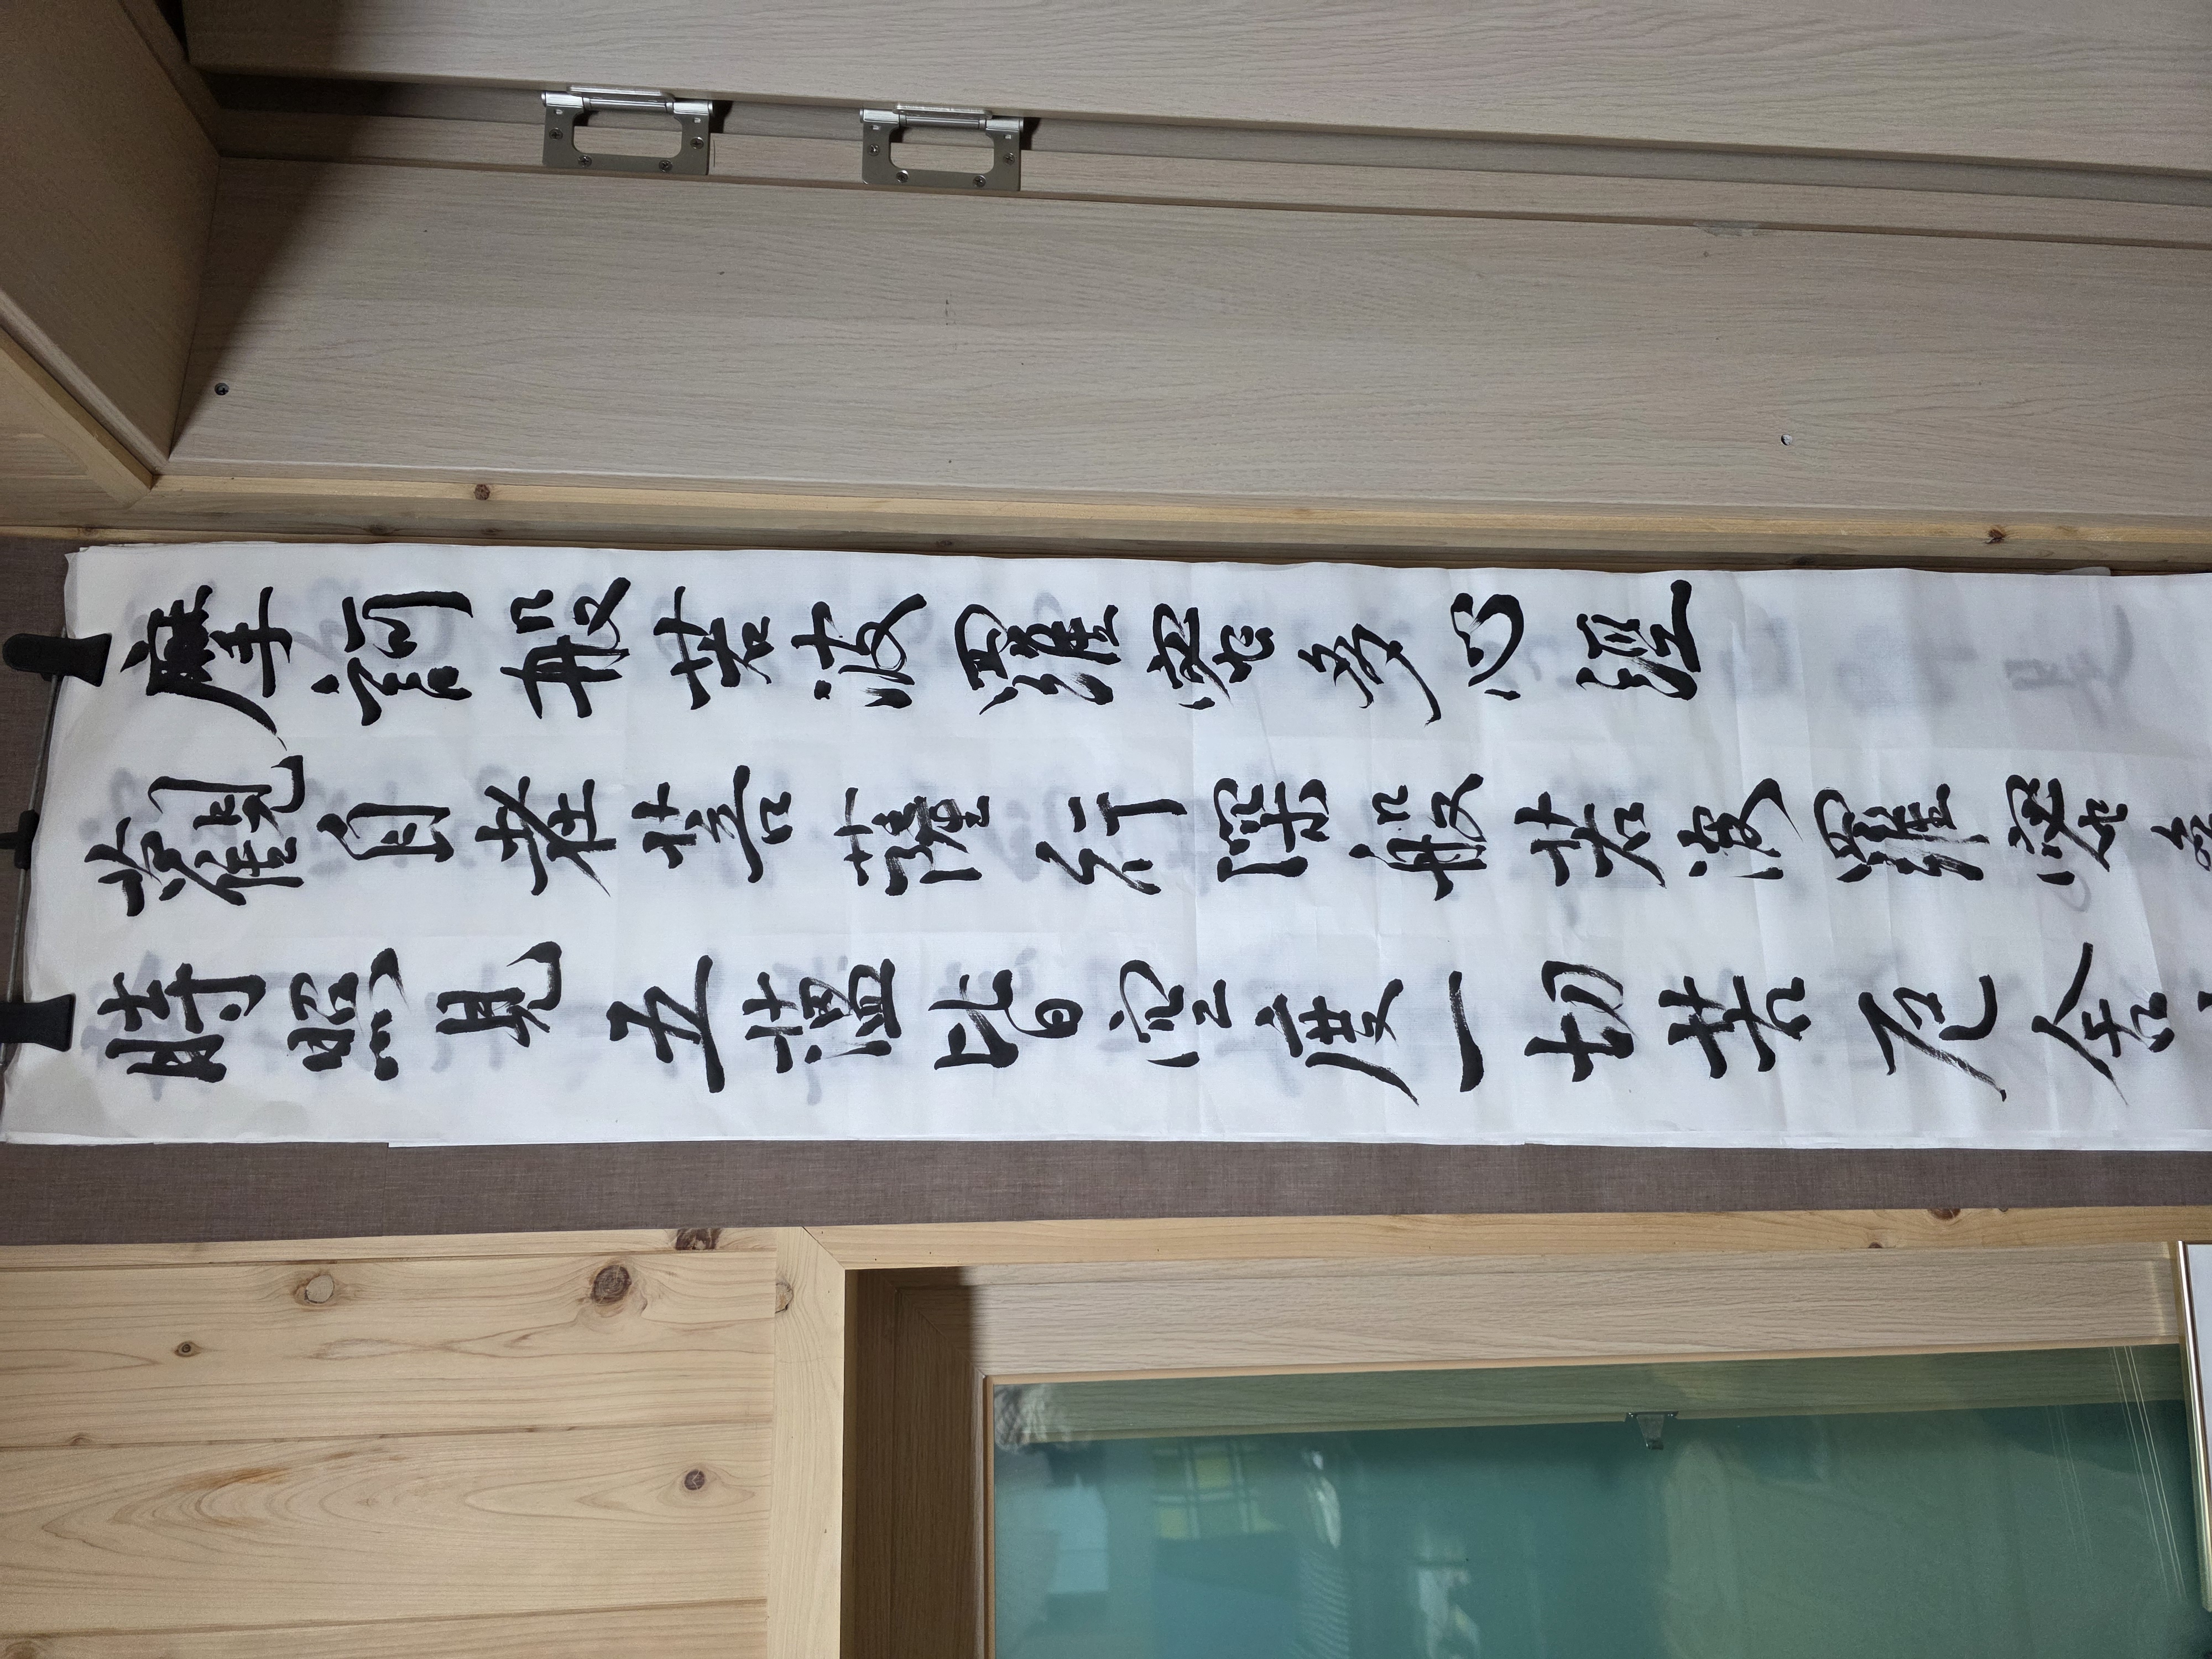 摩訶般若波羅蜜多心經
觀自在菩薩行深般若波羅蜜多
時照見五蘊皆空度一切苦厄舍